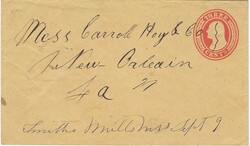 THREE
CENTS
Mess Carroll Hoy & Co
New-Orleain
La
Smiths Mill Miss Sept 9